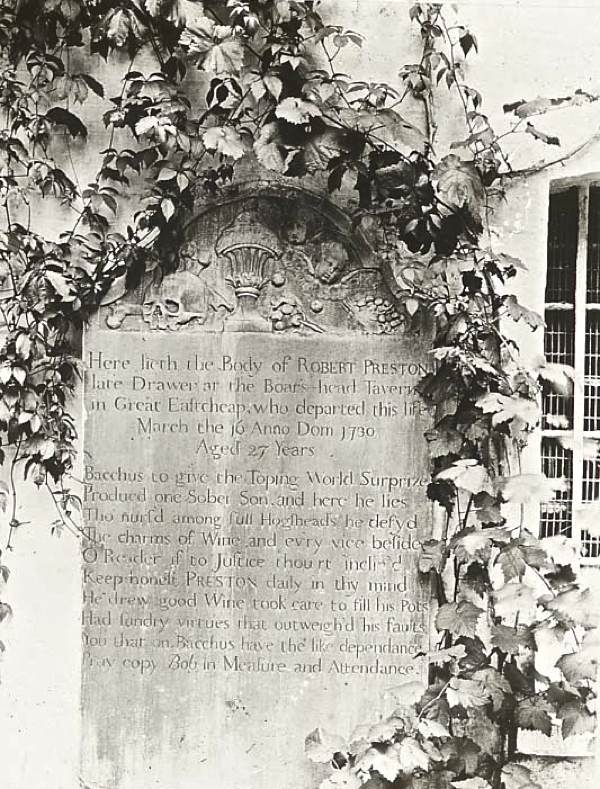 Here lieth the Body of ROBERT PRESTON
late Drawer at the Boars-head Tavern
in Great Eaſtcheap, who departed this life
March the 16 Anno Dom 1730
Aged 27 Years
Bacchus to give the Toping World Surprize
Produced one Sober Son, and here he lies
Tho' nurſ'd among full Hogſheads he defy'd
The charms of Wine and ev'ry vice beſide
O Reader if to Juſtice thou'rt inclin'd
Keep honeſt PRESTON daily in thy mind
He drew good Wine took care to fill his Pots
Had ſundry virtues that outweigh'd his faults
You that on Bacchus have the like dependance
Pray copy Bob in Meaſure and Attendance.